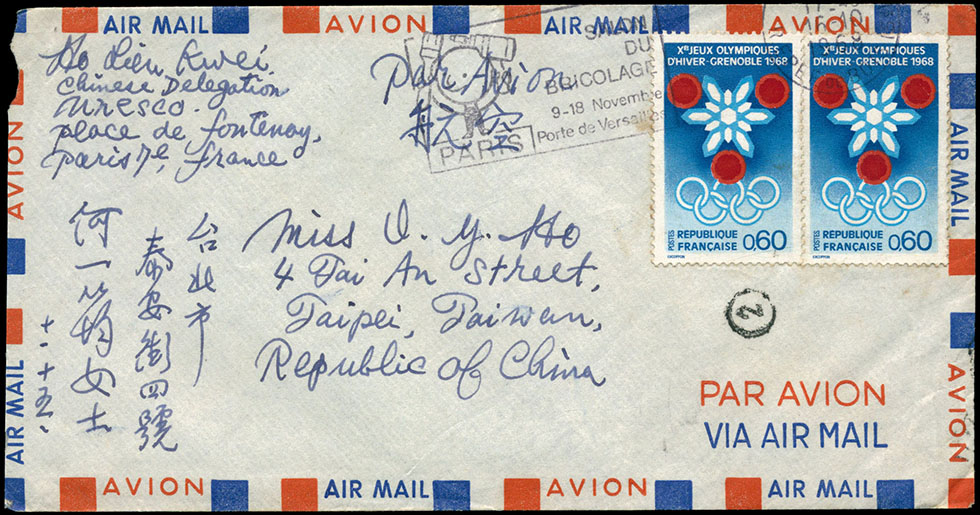 AIR MAIL AVION AIR MAIL AVION
Ho Lien Kwei
Chinese Delegation
Unesco.
place de Fontenoy,
Paris 7e, France
Par Avion
航空
DU
BRICOLAGE
9-18 Novembre
Porte de Versailles
PARIS
XES JEUX OLYMPIQUES
D'HIVER-GRENOBLE 1968
POSTES
RÉPUBLIQUE
FRANÇAISE 0,60
XES JEUX OLYMPIQUES
D'HIVER-GRENOBLE 1968
POSTES
RÉPUBLIQUE
FRANÇAISE 0,60
台北市
泰安街四號
何一均女士
十一、十五、
Miss I. Y. Ho
4 Tai An Street,
Taipei, Taiwan,
Republic of China
2
PAR AVION
VIA AIR MAIL
AVION
AIR MAIL
AVION
AIR MAIL
AIR MAIL
AVION
AVION AIR MAIL AVION AIR MAIL